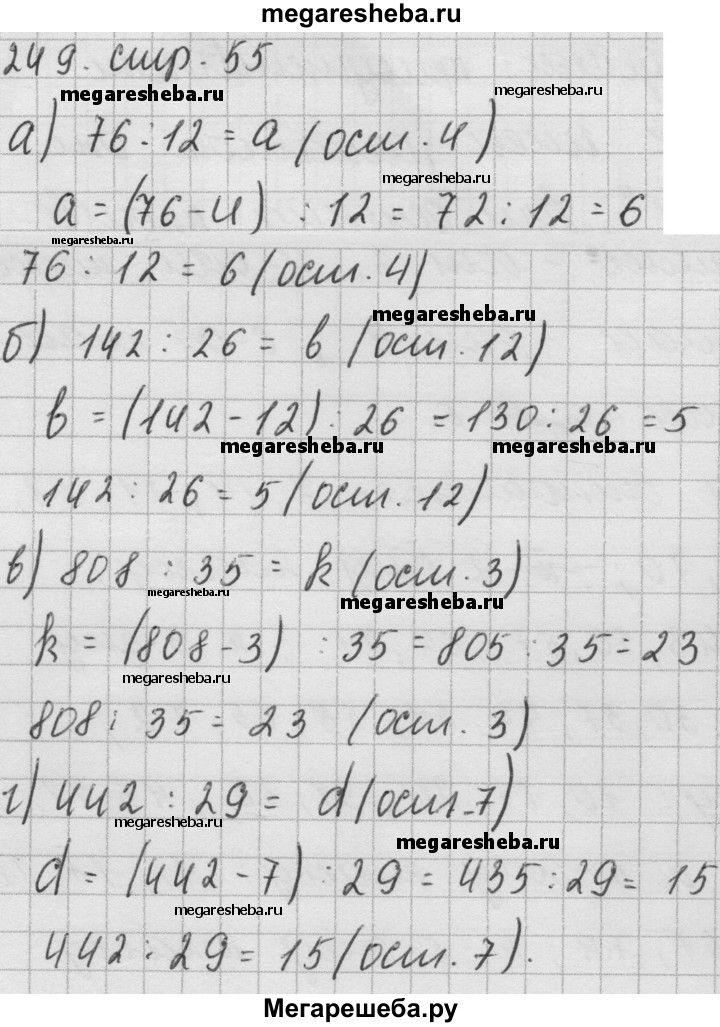 megaresheba.ru
249. стр. 55
megaresheba.ru
megaresheba.ru
а) 76 : 12 = a (ост. 4)
megaresheba.ru
a = (76 - 4) : 12 = 72 : 12 = 6
megaresheba.ru
76 : 12 = 6 (ост. 4)
megaresheba.ru
б) 142 : 26 = b (ост. 12)
b = (142 - 12) : 26 = 130 : 26 = 5
megaresheba.ru
megaresheba.ru
142 : 26 = 5 (ост. 12)
в) 808 : 35 = k (ост. 3)
megaresheba.ru
megaresheba.ru
k = (808 - 3) : 35 = 805 : 35 = 23
megaresheba.ru
808 : 35 = 23 (ост. 3)
г) 442 : 29 = d (ост. 7)
megaresheba.ru
megaresheba.ru
d = (442 - 7) : 29 = 435 : 29 = 15
megaresheba.ru
442 : 29 = 15 (ост. 7).
Мегарешеба.ру